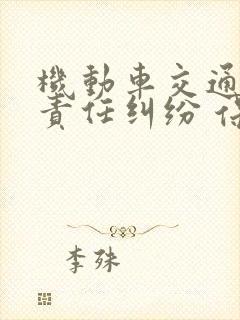 機動車交通
責任纠纷
李殊